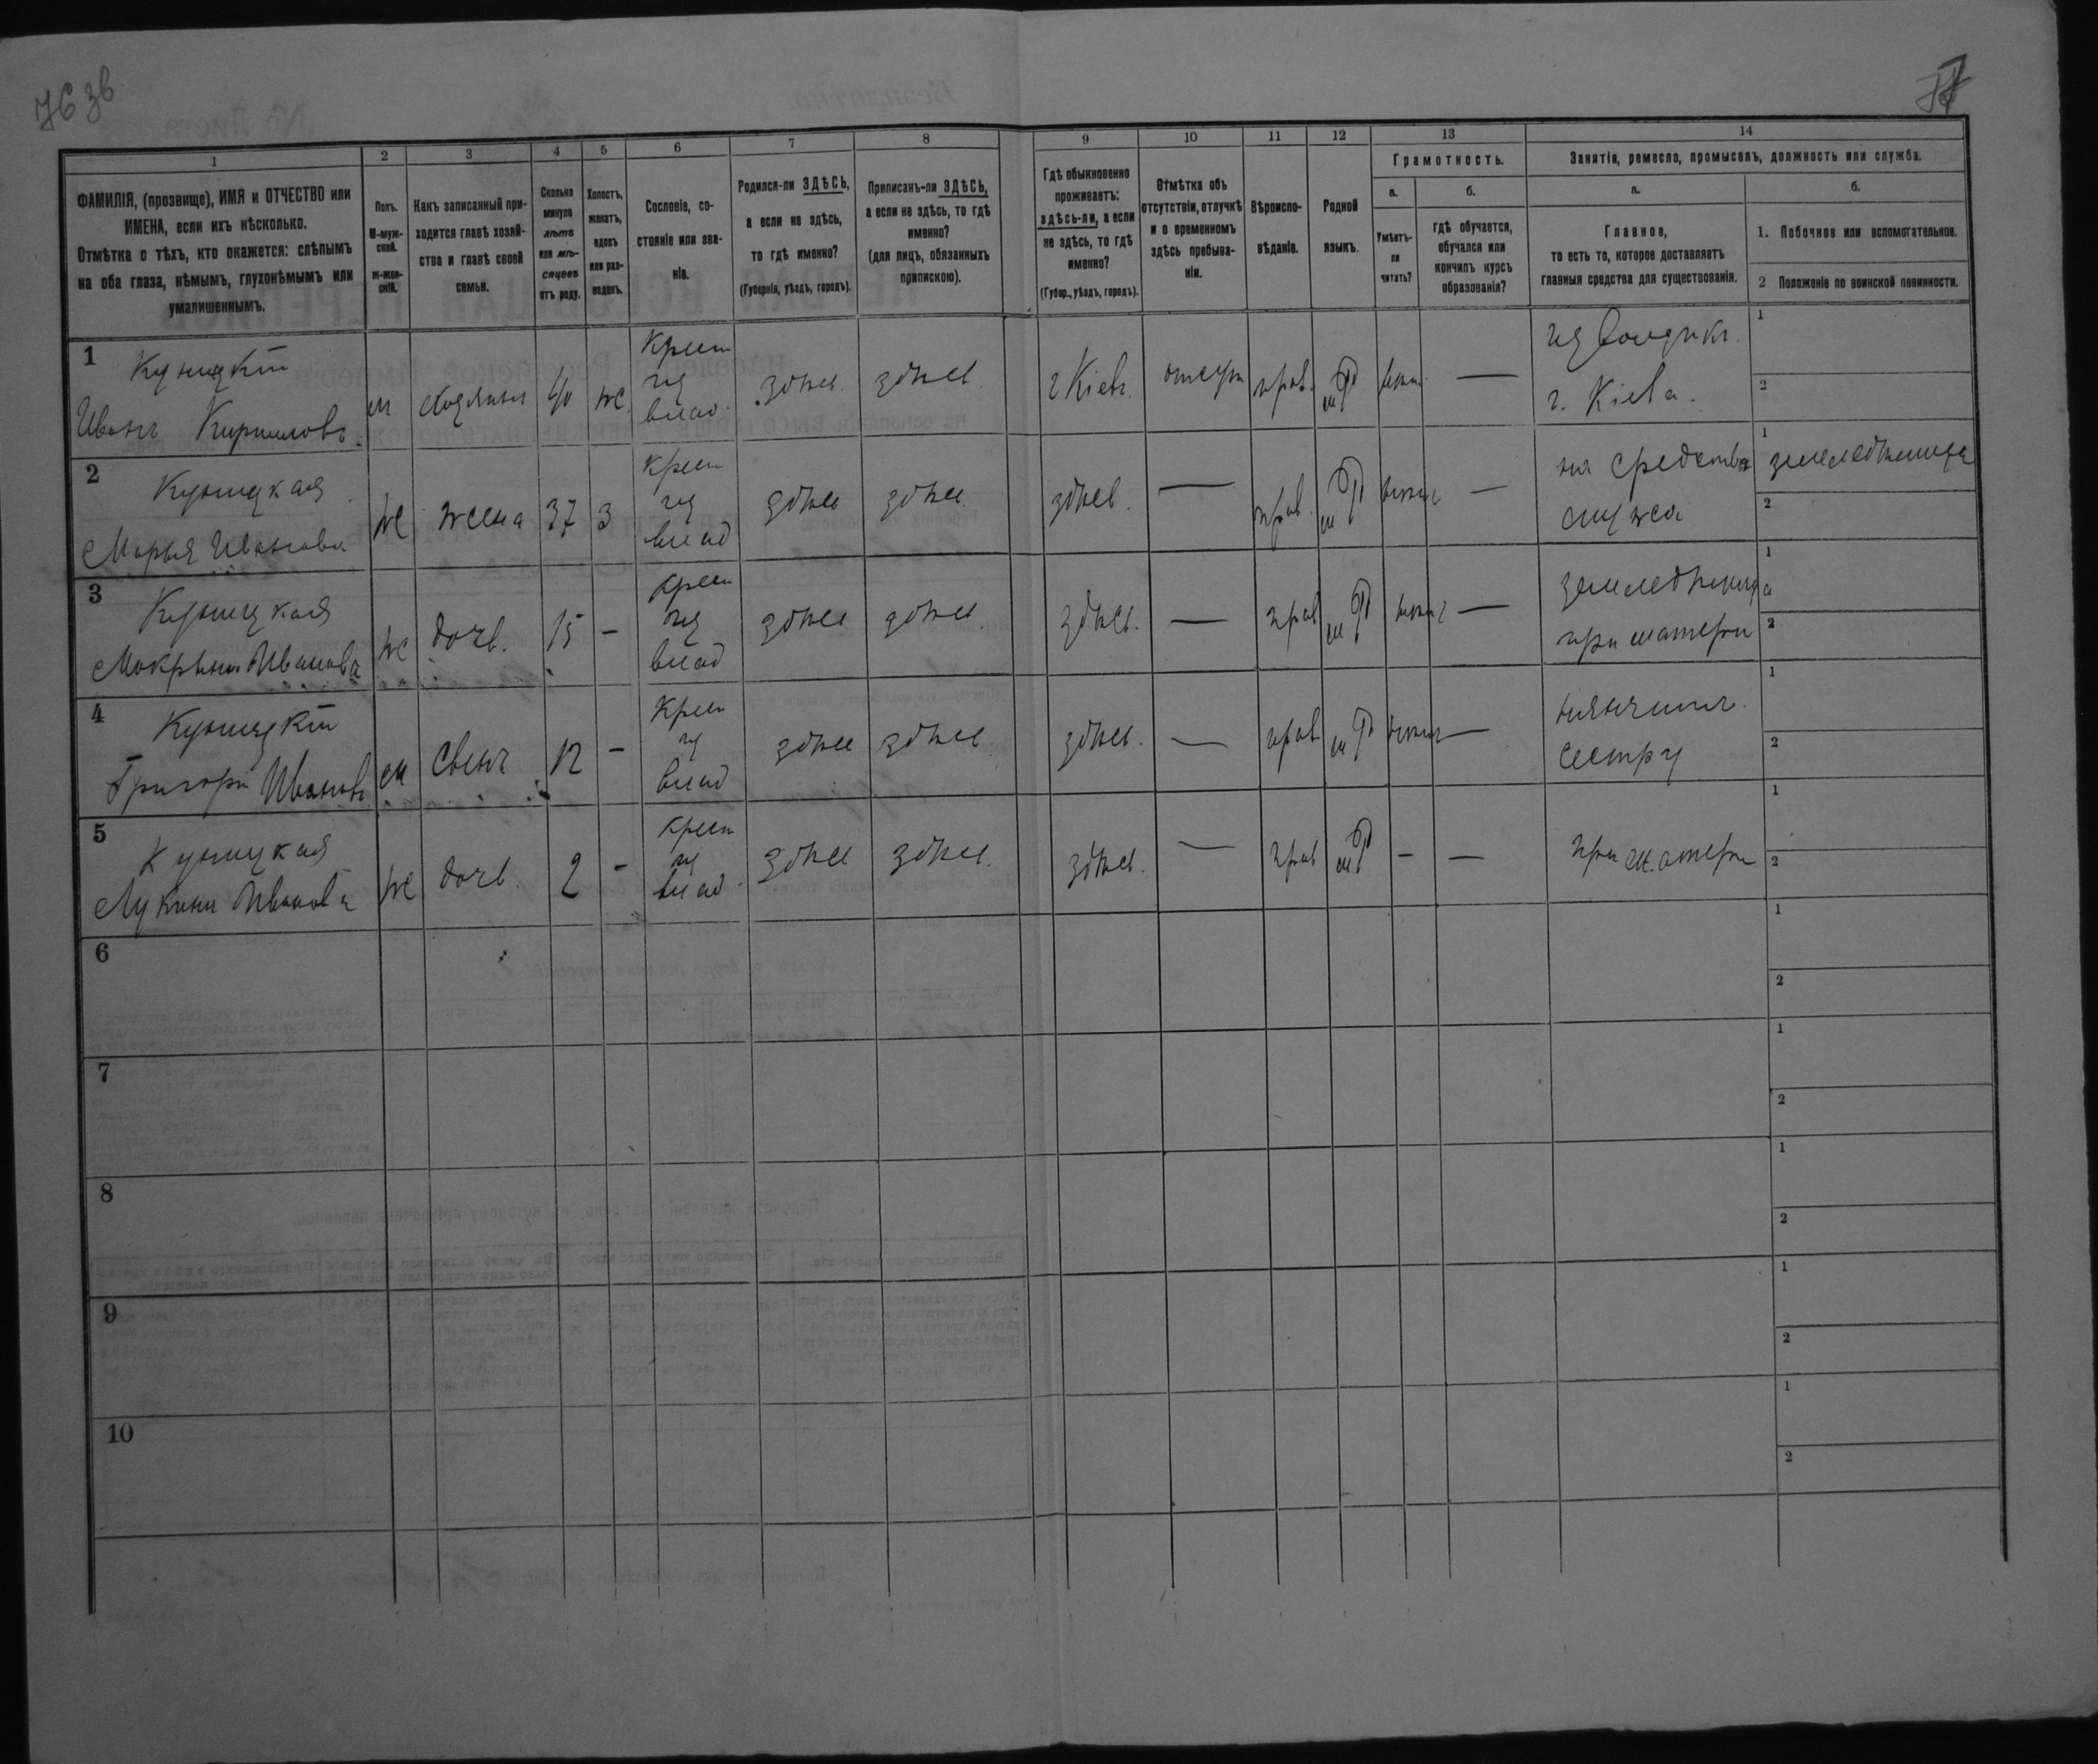 76 зв
77
1
2
3
4
5
6
7
8
9
10
11
12
13
14
ФАМИЛІЯ, (прозвище), ИМЯ и ОТЧЕСТВО или
ИМЕНА, если ихъ нѣсколько.
Отмѣтка о тѣхъ, кто окажется: слѣпымъ
на оба глаза, нѣмымъ, глухонѣмымъ или
умалишеннымъ.
Полъ.
М-муж-
ской.
ж-жен-
скій.
Какъ записанный при-
ходится главѣ хозяй-
ства и главѣ своей
семьи.
Сколько
минуло
лѣтъ
или мѣ-
сяцевъ
отъ роду.
Холостъ,
женатъ,
вдовъ
или раз-
веденъ.
Сословіе, со-
стояніе или зва-
ніе.
Родился-ли ЗДѢСЬ,
а если не здѣсь,
то гдѣ именно?
(Губернія, уѣздъ, городъ).
Приписанъ-ли ЗДѢСЬ,
а если не здѣсь, то гдѣ
именно?
(для лицъ, обязанныхъ
припискою).
Гдѣ обыкновенно
проживаетъ:
здѣсь-ли, а если
не здѣсь, то гдѣ
именно?
(Губер., уѣздъ, городъ).
Отмѣтка объ
отсутствіи, отлучкѣ
и о временномъ
здѣсь пребыва-
ніи.
Вѣроиспо-
вѣданіе.
Родной
языкъ.
Грамотность.
а.
б.
Умѣетъ-
ли
читать?
гдѣ обучается,
обучался или
кончилъ курсъ
образованія?
Занятіе, ремесло, промыселъ, должность или служба.
а.
б.
Главное,
то есть то, которое доставляетъ
главныя средства для существованія.
1. Побочное или вспомогательное.
2 Положеніе по воинской повинности.
1
Куницкій
Иванъ Кирилловъ
м
хозяинъ
40
ж.
крест
из
влад.
здѣсь
здѣсь
г Кіевъ
отсут
прав.
—
извощикъ
г. Кіева.
1
2
2
Куницкая
Марья Иванова
ж
жена
37
з
крест
из
влад
здѣсь
здѣсь
здѣсь.
—
прав.
—
на средства
мужа
1 земледѣлица
2
3
Куницкая
Мокрына Иванова
ж
дочь.
15
-
крест
из
влад
здѣсь
здѣсь
здѣсь.
—
прав
—
земледѣлица
при матери
1
2
4
Куницкій
Григорій Ивановъ
м
сынъ
12
-
крест
из
влад
здѣсь
здѣсь
здѣсь.
—
прав
—
сестру
1
2
5
Куницкая
Лукина Иванова
ж
дочь.
2
-
крест
из
влад
здѣсь
здѣсь.
здѣсь.
—
прав
-
—
при матери
1
2
6
1
2
7
1
2
8
1
2
9
1
2
10
1
2